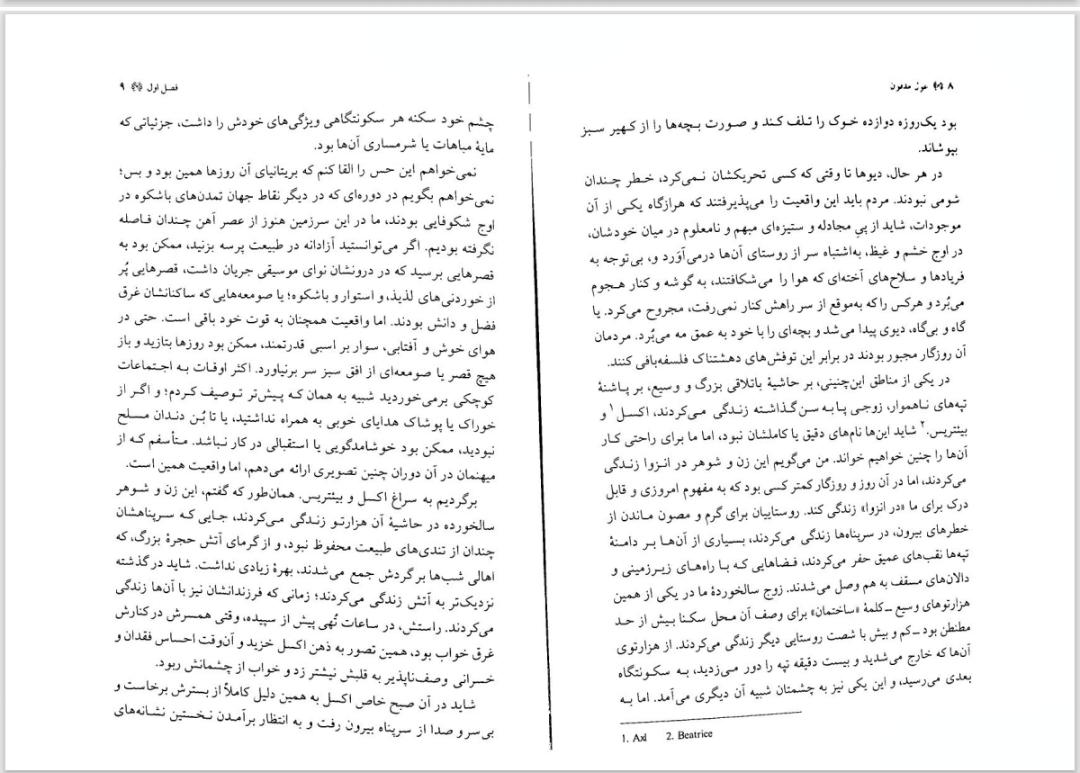 ۸ غول مدفون
بود یک‌روزه دوازده خوک را تلف کند و صورت بچه‌ها را از کهیر سبز
بپوشاند.
در هر حال، دیوها تا وقتی که کسی تحریکشان نمی‌کرد، خطر چندان
شومی نبودند. مردم باید این واقعیت را می‌پذیرفتند که هرازگاه یکی از آن
موجودات، شاید از پیِ مجادله و ستیزه‌ای مبهم و نامعلوم در میان خودشان،
در اوج خشم و غیظ، به‌اشتباه سر از روستای آن‌ها درمی‌آوَرد و، بی‌توجه به
فریادها و سلاح‌های آخته‌ای که هوا را می‌شکافتند، به گوشه و کنار هجوم
می‌بُرد و هرکس را که به‌موقع از سر راهش کنار نمی‌رفت، مجروح می‌کرد. یا
گاه و بی‌گاه، دیوی پیدا می‌شد و بچه‌ای را با خود به عمق مه می‌بُرد. مردمان
آن روزگار مجبور بودند در برابر این توفش‌های دهشتناک فلسفه‌بافی کنند.
در یکی از مناطق این‌چنینی، بر حاشیهٔ باتلاقی بزرگ و وسیع، بر پاشنهٔ
تپه‌های ناهموار، زوجی پا به سن گذاشته زندگی می‌کردند، اکسل۱ و
بیئتریس.۲ شاید این‌ها نام‌های دقیق یا کاملشان نبود، اما ما برای راحتی کار
آن‌ها را چنین خواهیم خواند. من می‌گویم این زن و شوهر در انزوا زندگی
می‌کردند، اما در آن روز و روزگار کمتر کسی بود که به مفهوم امروزی و قابل
درک برای ما «در انزوا» زندگی کند. روستاییان برای گرم و مصون ماندن از
خطرهای بیرون، در سرپناه‌ها زندگی می‌کردند، بسیاری از آن‌ها بر دامنهٔ
تپه‌ها نقب‌های عمیق حفر می‌کردند، فضاهایی که با راه‌های زیرزمینی و
دالان‌های مسقف به هم وصل می‌شدند. زوج سالخوردهٔ ما در یکی از همین
هزارتوهای وسیع ـ‌کلمهٔ «ساختمان» برای وصف آن محل سکنا بیش از حد
مطنطن بود ـ‌کم و بیش با شصت روستایی دیگر زندگی می‌کردند. از هزارتوی
آن‌ها که خارج می‌شدید و بیست دقیقه تپه را دور می‌زدید، به سکونتگاه
بعدی می‌رسید، و این یکی نیز به چشمتان شبیه آن دیگری می‌آمد. اما به
1. Axl 2. Beatrice
فصل اول ۹
چشم خود سکنه هر سکونتگاهی ویژگی‌های خودش را داشت، جزئیاتی که
مایهٔ مباهات یا شرمساری آن‌ها بود.
نمی‌خواهم این حس را القا کنم که بریتانیای آن روزها همین بود و بس؛
نمی‌خواهم بگویم در دوره‌ای که در دیگر نقاط جهان تمدن‌های باشکوه در
اوج شکوفایی بودند، ما در این سرزمین هنوز از عصر آهن چندان فاصله
نگرفته بودیم. اگر می‌توانستید آزادانه در طبیعت پرسه بزنید، ممکن بود به
قصرهایی برسید که در درونشان نوای موسیقی جریان داشت، قصرهایی پُر
از خوردنی‌های لذیذ، و استوار و باشکوه؛ یا صومعه‌هایی که ساکنانشان غرق
فضل و دانش بودند. اما واقعیت همچنان به قوت خود باقی است. حتی در
هوای خوش و آفتابی، سوار بر اسبی قدرتمند، ممکن بود روزها بتازید و باز
هیچ قصر یا صومعه‌ای از افق سبز سر برنیاورد. اکثر اوقات به اجتماعات
کوچکی برمی‌خوردید شبیه به همان که پیش‌تر توصیف کردم؛ و اگر از
خوراک یا پوشاک هدایای خوبی به همراه نداشتید، یا تا بُن دندان مسلح
نبودید، ممکن بود خوشامدگویی یا استقبالی در کار نباشد. متأسفم که از
میهنمان در آن دوران چنین تصویری ارائه می‌دهم، اما واقعیت همین است.
برگردیم به سراغ اکسل و بیئتریس. همان‌طور که گفتم، این زن و شوهر
سالخورده در حاشیهٔ آن هزارتو زندگی می‌کردند، جایی که سرپناهشان
چندان از تندی‌های طبیعت محفوظ نبود، و از گرمای آتش حجرهٔ بزرگ، که
اهالی شب‌ها بر گردش جمع می‌شدند، بهرهٔ زیادی نداشت. شاید در گذشته
نزدیک‌تر به آتش زندگی می‌کردند؛ زمانی که فرزندانشان نیز با آن‌ها زندگی
می‌کردند. راستش، در ساعات تُهی پیش از سپیده، وقتی همسرش در کنارش
غرق خواب بود، همین تصور به ذهن اکسل خزید و آن‌وقت احساس فقدان و
خسرانی وصف‌ناپذیر به قلبش نیشتر زد و خواب از چشمانش ربود.
شاید در آن صبح خاص اکسل به همین دلیل کاملاً از بسترش برخاست و
بی‌سر و صدا از سرپناه بیرون رفت و به انتظار برآمدن نخستین نشانه‌های